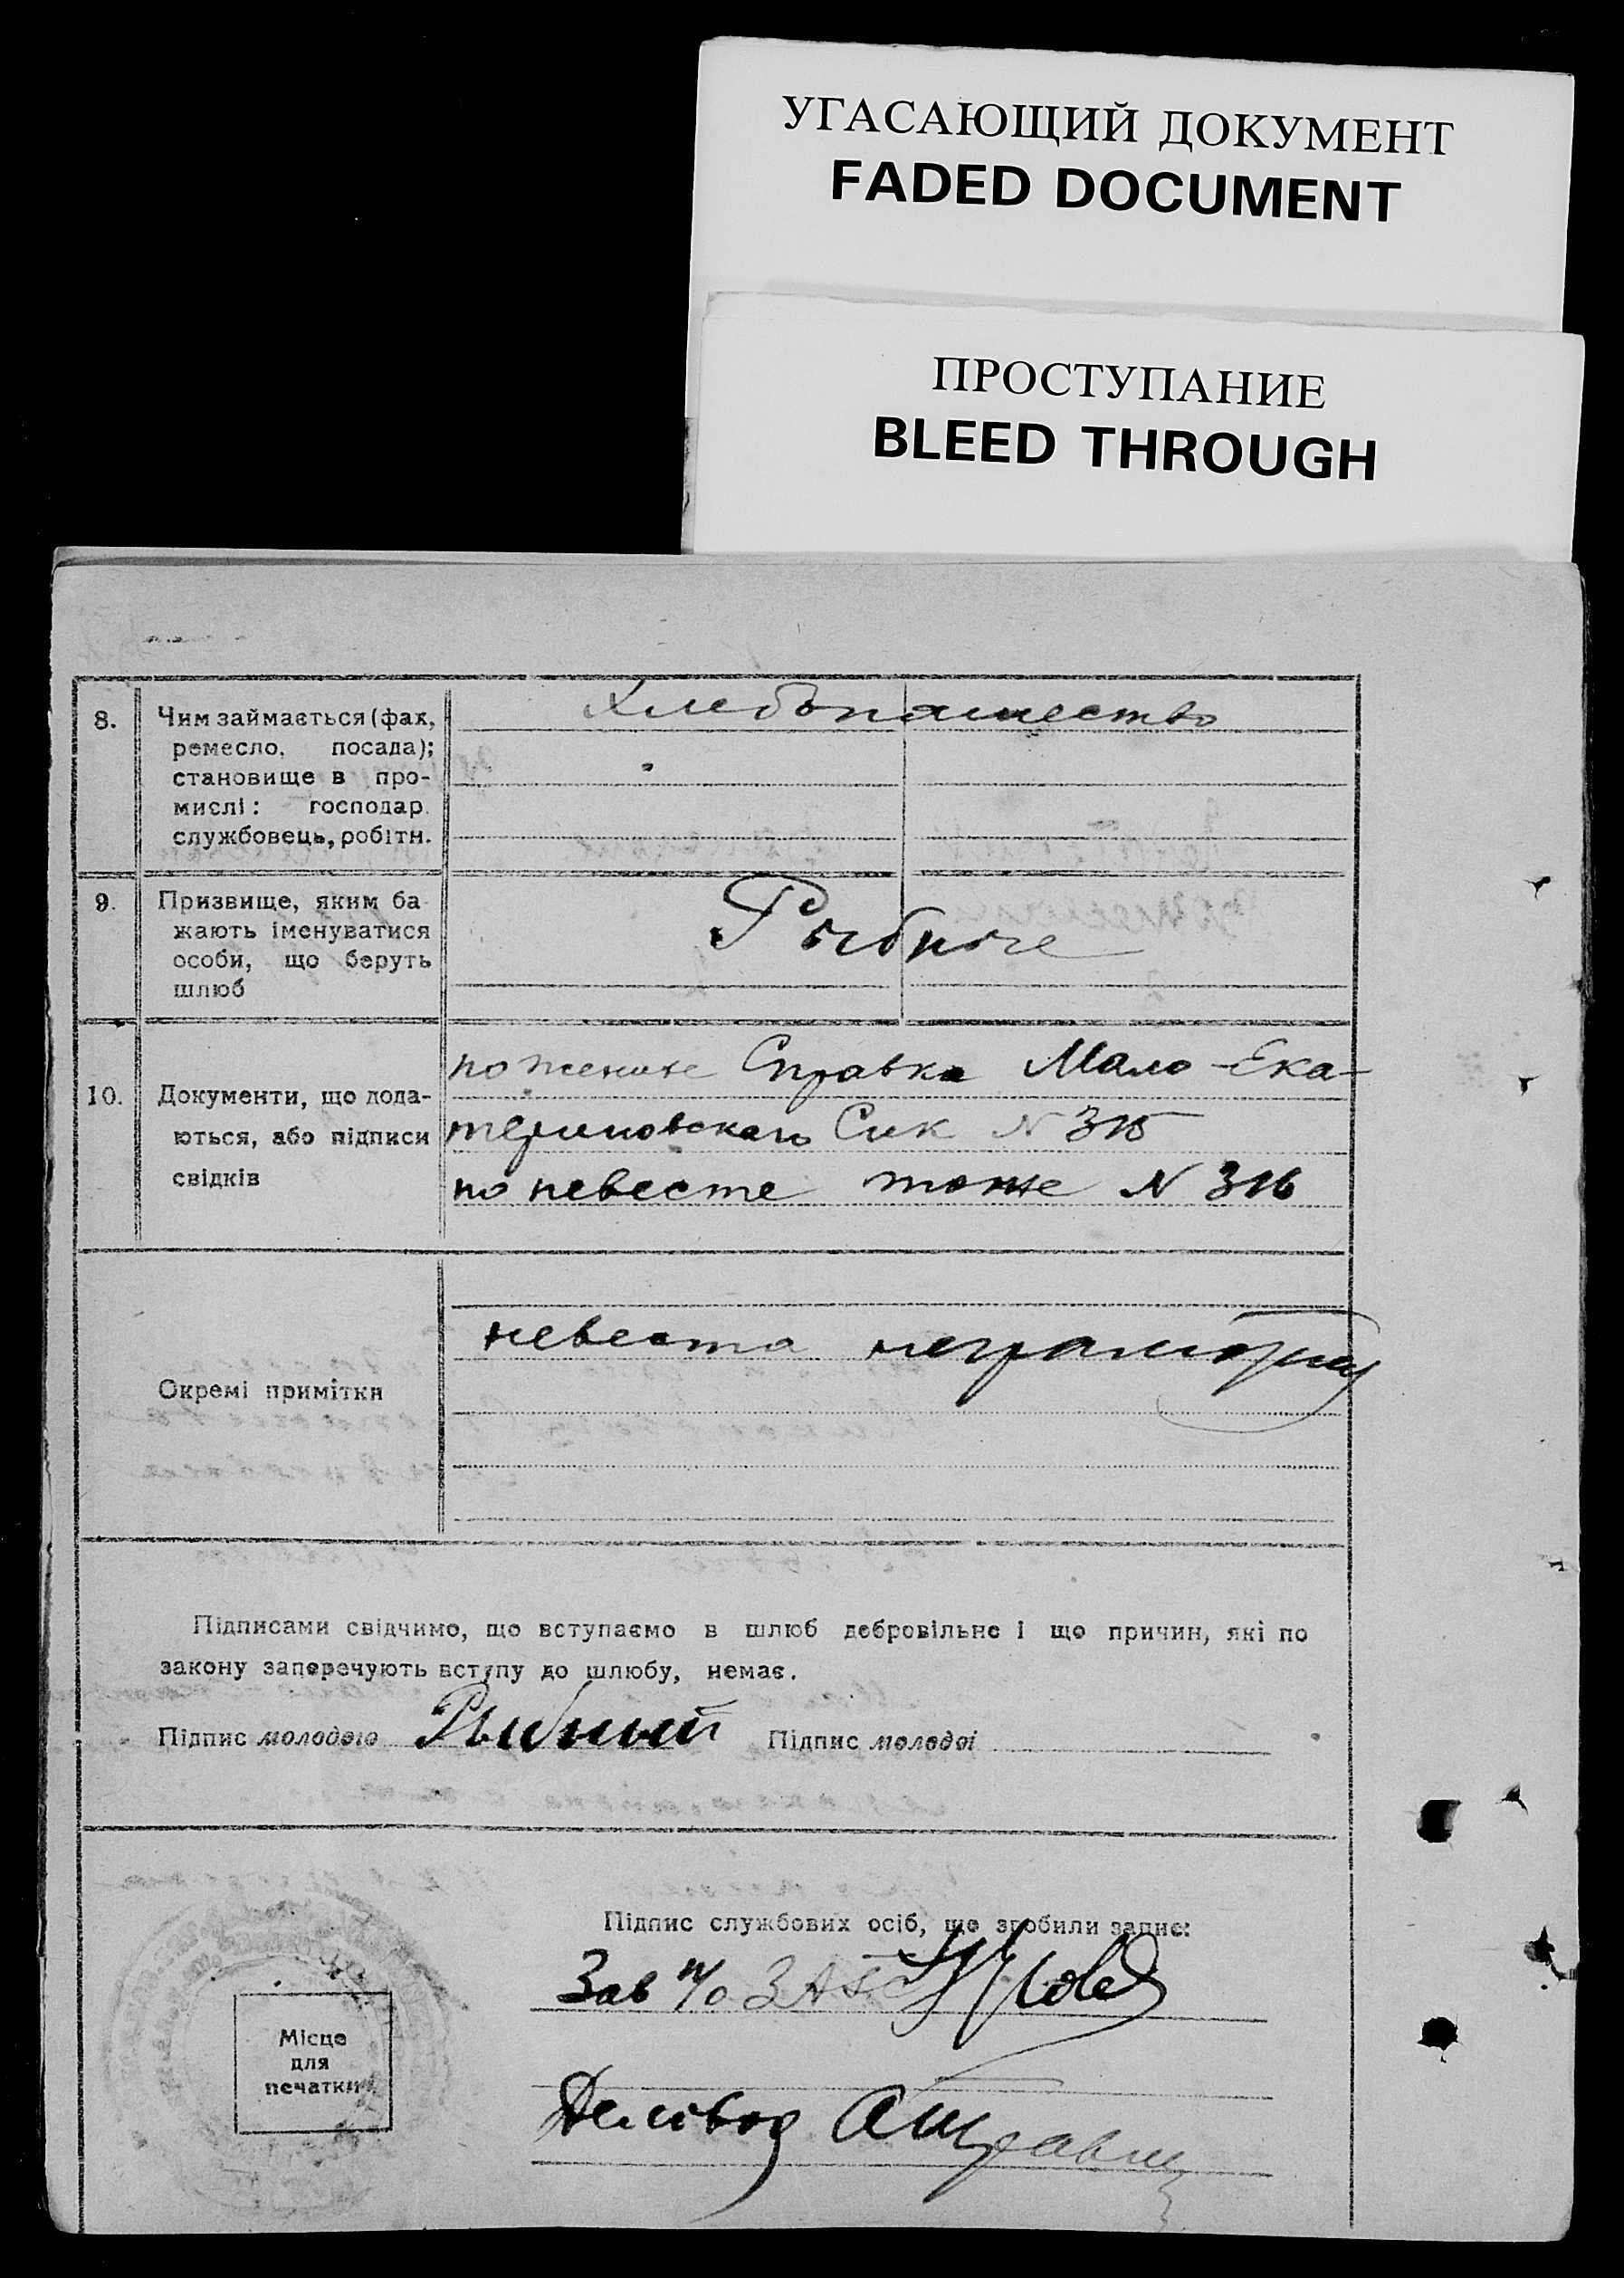 УГАСАЮЩИЙ ДОКУМЕНТ
FADED DOCUMENT
ПРОСТУПАНИЕ
BLEED THROUGH
8. Чим займається (фах,
ремесло, посада);
становище в про-
мислі: господар
службовець, робітн.
Хлебопашество
9. Призвище, яким ба-
жають іменуватися
особи, що беруть
шлюб
Рыбные
10. Документи, що дода-
ються, або підписи
свідків
по женихе Справка Мало-Ека-
териновского Сик N 315
по невесте тоже N 316
Окремі примітки
невеста неграмотная
Підписами свідчимо, що вступаємо в шлюб добровільно і що причин, які по
закону заперечують вступу до шлюбу, немає.
Підпис молодого Рыбный Підпис молодої
Підпис службових осіб, що зробили запис:
Зав п/о ЗАГС
Місце
для
печатки
Деловод